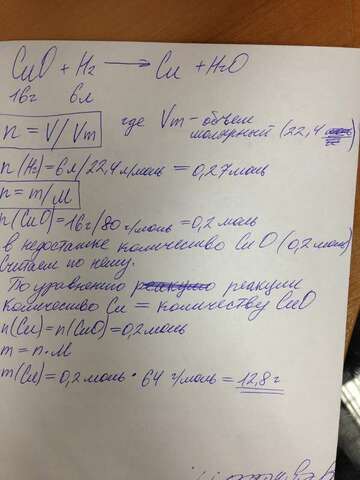 CuO + H₂ ⟶ Cu + H₂O
16г 6л
n = V/Vm где Vm - объем
молярный (22,4
n(H₂) = 6л/22,4 л/моль = 0,27 моль
n = m/M
n(CuO) = 16г/80 г/моль = 0,2 моль
в недостатке количество CuO (0,2 моль)
Считаем по нему.
По уравнению реакции
количество Cu = количеству CuO
n(Cu) = n(CuO) = 0,2 моль
m = n·M
m(Cu) = 0,2 моль · 64 г/моль = 12,8 г